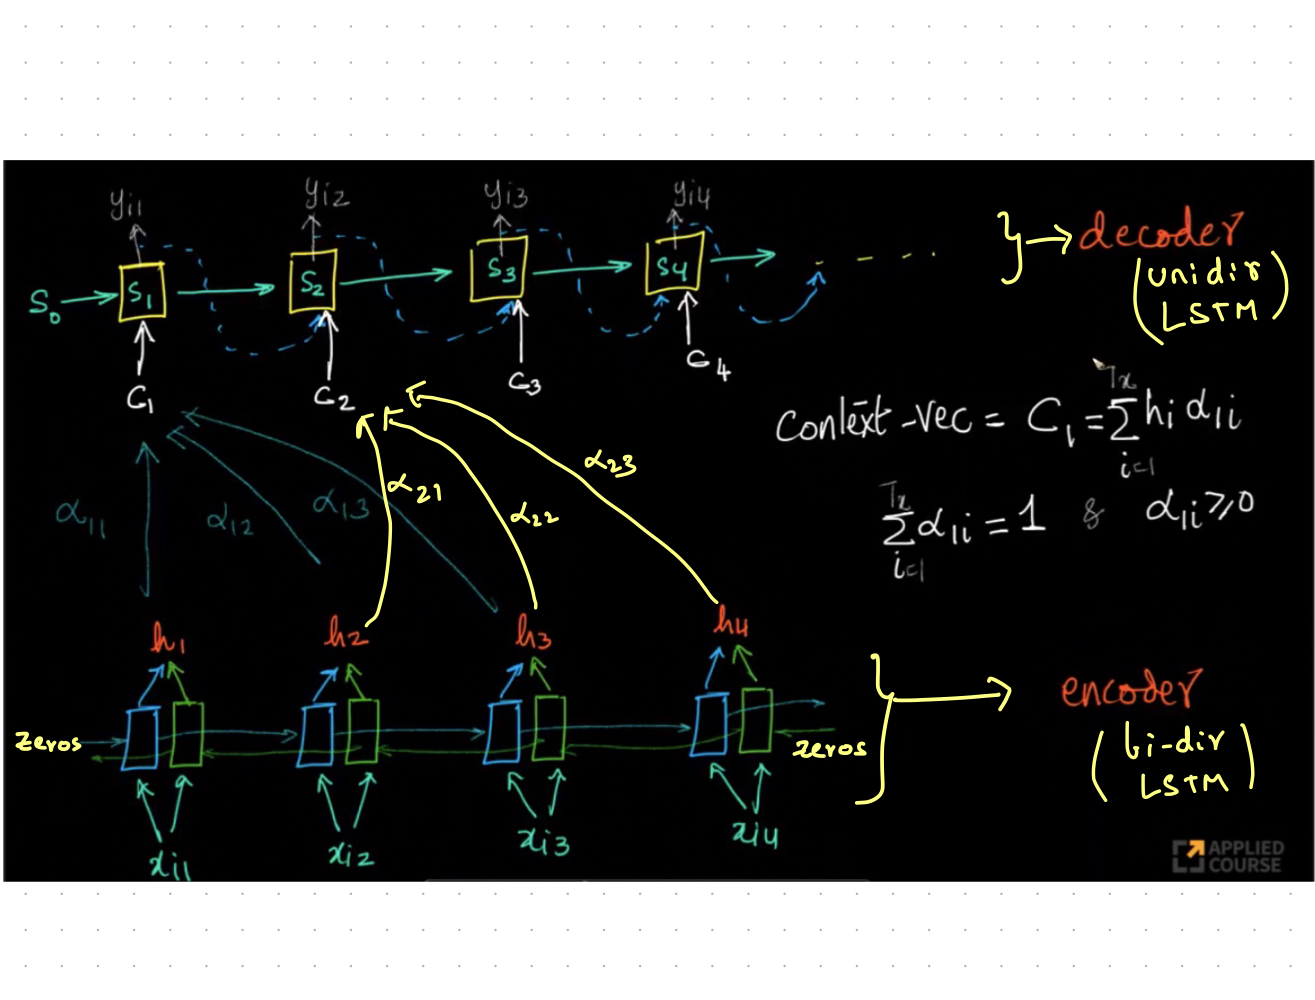 yi1 yi2 yi3 yi4
S₀ S1 S2 S3 S4
decoder
(unidir
LSTM)
C1 C2 C3 C4
Context-vec = C₁ = Σ_{i=1}^{Tx} hi α1i
Σ_{i=1}^{Tx} α1i = 1 & α1i ≥ 0
α11 α12 α13 α21 α22 α23
h1 h2 h3 h4
encoder
(bi-dir
LSTM)
zeros zeros
xi1 xi2 xi3 xi4
APPLIED
COURSE